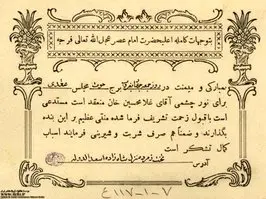 بتوجهات کامله اعلیحضرت امام عصر عجل الله تعالی فرجه
بمبارکی و میمنت در روز مجلس عقدی
برای نور چشمی آقای غلامحسین خان منعقد است مستدعی
است با قبول زحمت تشریف فرما شده منتی عظیم بر این بنده
بگذارند و ضمناً هم صرف شربت و شیرینی فرمایند اسباب
کمال تشکر است
آدرس منزل شاهزاده
۱-۷-۱۱۷ ع